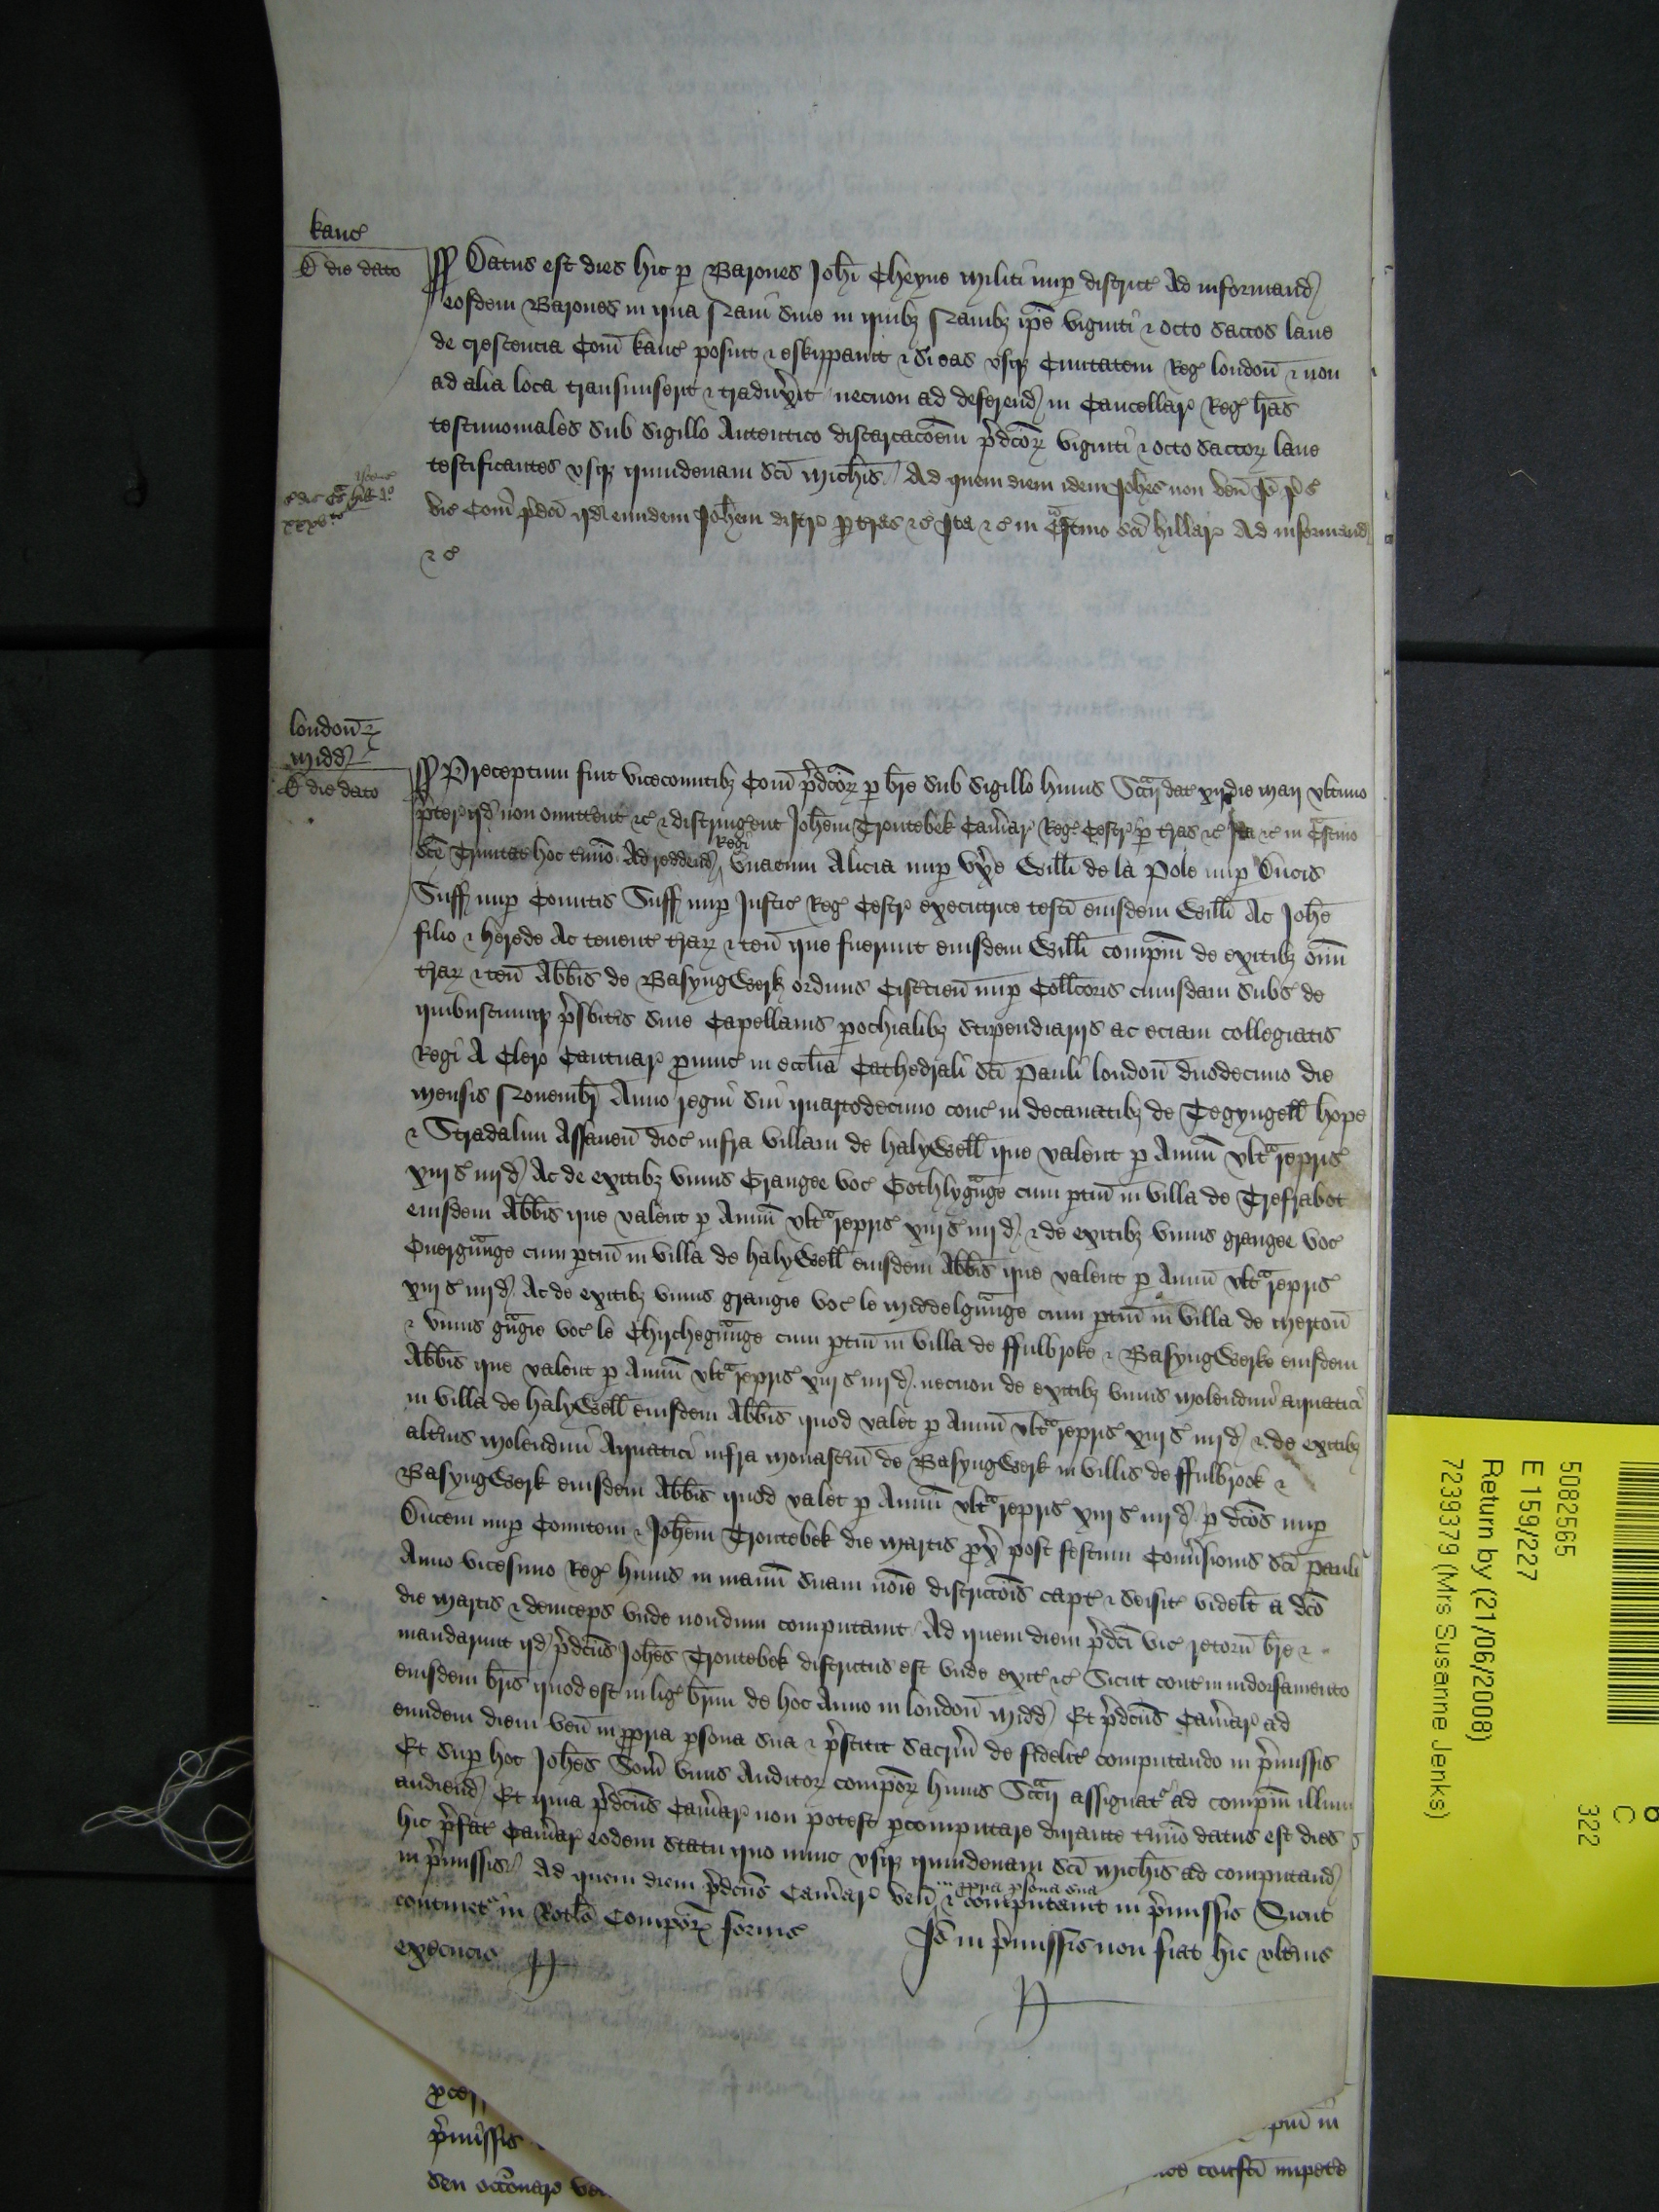 kanc̄
D die dato
Datus est dies hic p Barones Joh̄i Cheyne militi nup district Ad informand
eosdem Barones in qua Navi sive in quibȝ Navibȝ ip̄e viginti & octo saccos lane
de crescencia Com̄ kanc̄ posuit & eskippavit & si eas usqȝ Civitatem Reḡ london̄ & non
ad alia loca transmiserit & traduxit necnon ad deferend in Cancellar Reḡ lr̄as
testimoniales sub sigillo Autentico discarcacōem p̄dcōꝝ viginti & octo saccoꝝ lane
testificantes usqȝ quindenam Sc̄i Mich̄is Ad quem diem idem Joh̄es non ven̄
vic̄ Com̄ p̄dc̄i qd eundem Joh̄em distr p̄ tr̄as &c̄ Ita &c̄ in C̄stino Sc̄i hillar Ad informand
&c̄
london̄ &
midd
D die dato
Preceptum fuit vicecomitibȝ Com̄ p̄dcōꝝ p br̄e sub sigillo huius Scc̄ij dat xij die maij ultimo
p̄ter qd non omittent &c & distringent Joh̄em Troutebek Cam̄ar Reḡ Cestr p̄ tr̄as &c Ita &c in C̄stino
Sc̄e Trinitat hoc t̄mio Ad reddend Regi unacum Alicia nup ux̄e Will̄i de la Pole nup Ducis
Suff nup Comitis Suff nup Justic̄ Reḡ Cestr executrice testi eiusdem Will̄i Ac Joh̄e
filio & herede Ac tenent tr̄aꝝ & ten̄ que fuerunt eiusdem Will̄i comp̄m de exitibȝ om̄i
tr̄aꝝ & ten̄ Abb̄is de BasyngWerk ordinis Cistercien̄ nup Coll̄coris cuiusdam Subs̄ de
quibuscumqȝ p̄sbitis sive Capellanis pochialibȝ stipendiarijs ac eciam collegiatis
Regi A Clero Cantuar p̄vinc̄ in eccl̄ia Cathedrali Sc̄i Pauli london̄ duodecimo die
mensis Novembr̄ Anno regni sui quartodecimo conc̄ in decanatibȝ de Tegyngell̄ hope
& Stradalun Assaven̄ dioc̄ infra villam de halyWell̄ que valent p Annū ult̄ repris̄
xiij s̄ iiij d Ac de exitibȝ unius Grangee voc̄ Gothlygrange cum ptin̄ in villa de Trefrabot
eiusdem Abb̄is que valent p Annū ult̄ repris̄ xiij s̄ iiij d & de exitibȝ unius grangee voc̄
Overgrange cum ptin̄ in villa de halyWell̄ eiusdem Abb̄is que valent p Annū ult̄ repris̄
xiij s̄ iiij d Ac de exitibȝ unius grangie voc̄ le middelgrange cum ptin̄ in villa de merton̄
& unius grāgie voc̄ le Chirchegrange cum ptin̄ in villa de ffulbroke & BasyngWerke eiusdem
Abb̄is que valent p Annū ult̄ repris̄ xiij s̄ iiij d necnon de exitibȝ unius molendini aquatici
in villa de halyWell̄ eiusdem Abb̄is quod valet p Annū ult̄ repris̄ xiij s̄ iiij d & de exitibȝ
alt̄ius molendini Aquatici infra monast̄iū de BasyngWerk in villis de ffulbrook &
BasyngWerk eiusdem Abb̄is quod valet p Annū ult̄ repris̄ xiij s̄ iiij d p dc̄os nup
Ducem nup Comitem & Joh̄em Troutebek die martis p̄x post festum Conv̄sionis Sc̄i Pauli
Anno vicesimo Reḡ huius in manū suam nōie districcōis capt & seisit videlt a dc̄o
die martis & deinceps unde nondum computavit Ad quem diem p̄dc̄i vic̄ retorn̄ br̄e &
mandarunt qd p̄dc̄us Joh̄es Troutebek districtus est unde exit &c Sicut cont in indorsamento
eiusdem br̄is quod est in liḡ br̄ium de hoc Anno in london̄ midd Et p̄dc̄us Cam̄ar ad
eundem diem ven̄ in ppria psona sua & p̄stitit sacr̄m de fidelit computando in p̄missis
Et sup hoc Joh̄es Som̄ unus Auditoꝝ compōꝝ huius Scc̄ij assignat ad comp̄m illum
audiend Et quia p̄dc̄us Cam̄ar non potest pcomputare durante t̄mio datus est dies
hic p̄fat Cam̄ar eodem statu quo nunc usqȝ quindenam Sc̄i Mich̄is ad computand
in p̄missis Ad quem diem p̄dc̄us Cam̄ar ven̄ in ppria psona sua & computavit in p̄missis Sicut
continet in Rotl̄o Compōꝝ forins̄ Iō in p̄missis non fiat hic ult̄ius
execucio
p̄missis
5082565
E 159/227
Return by (21/06/2008)
7239379 (Mrs Susanne Jenks)
C
322